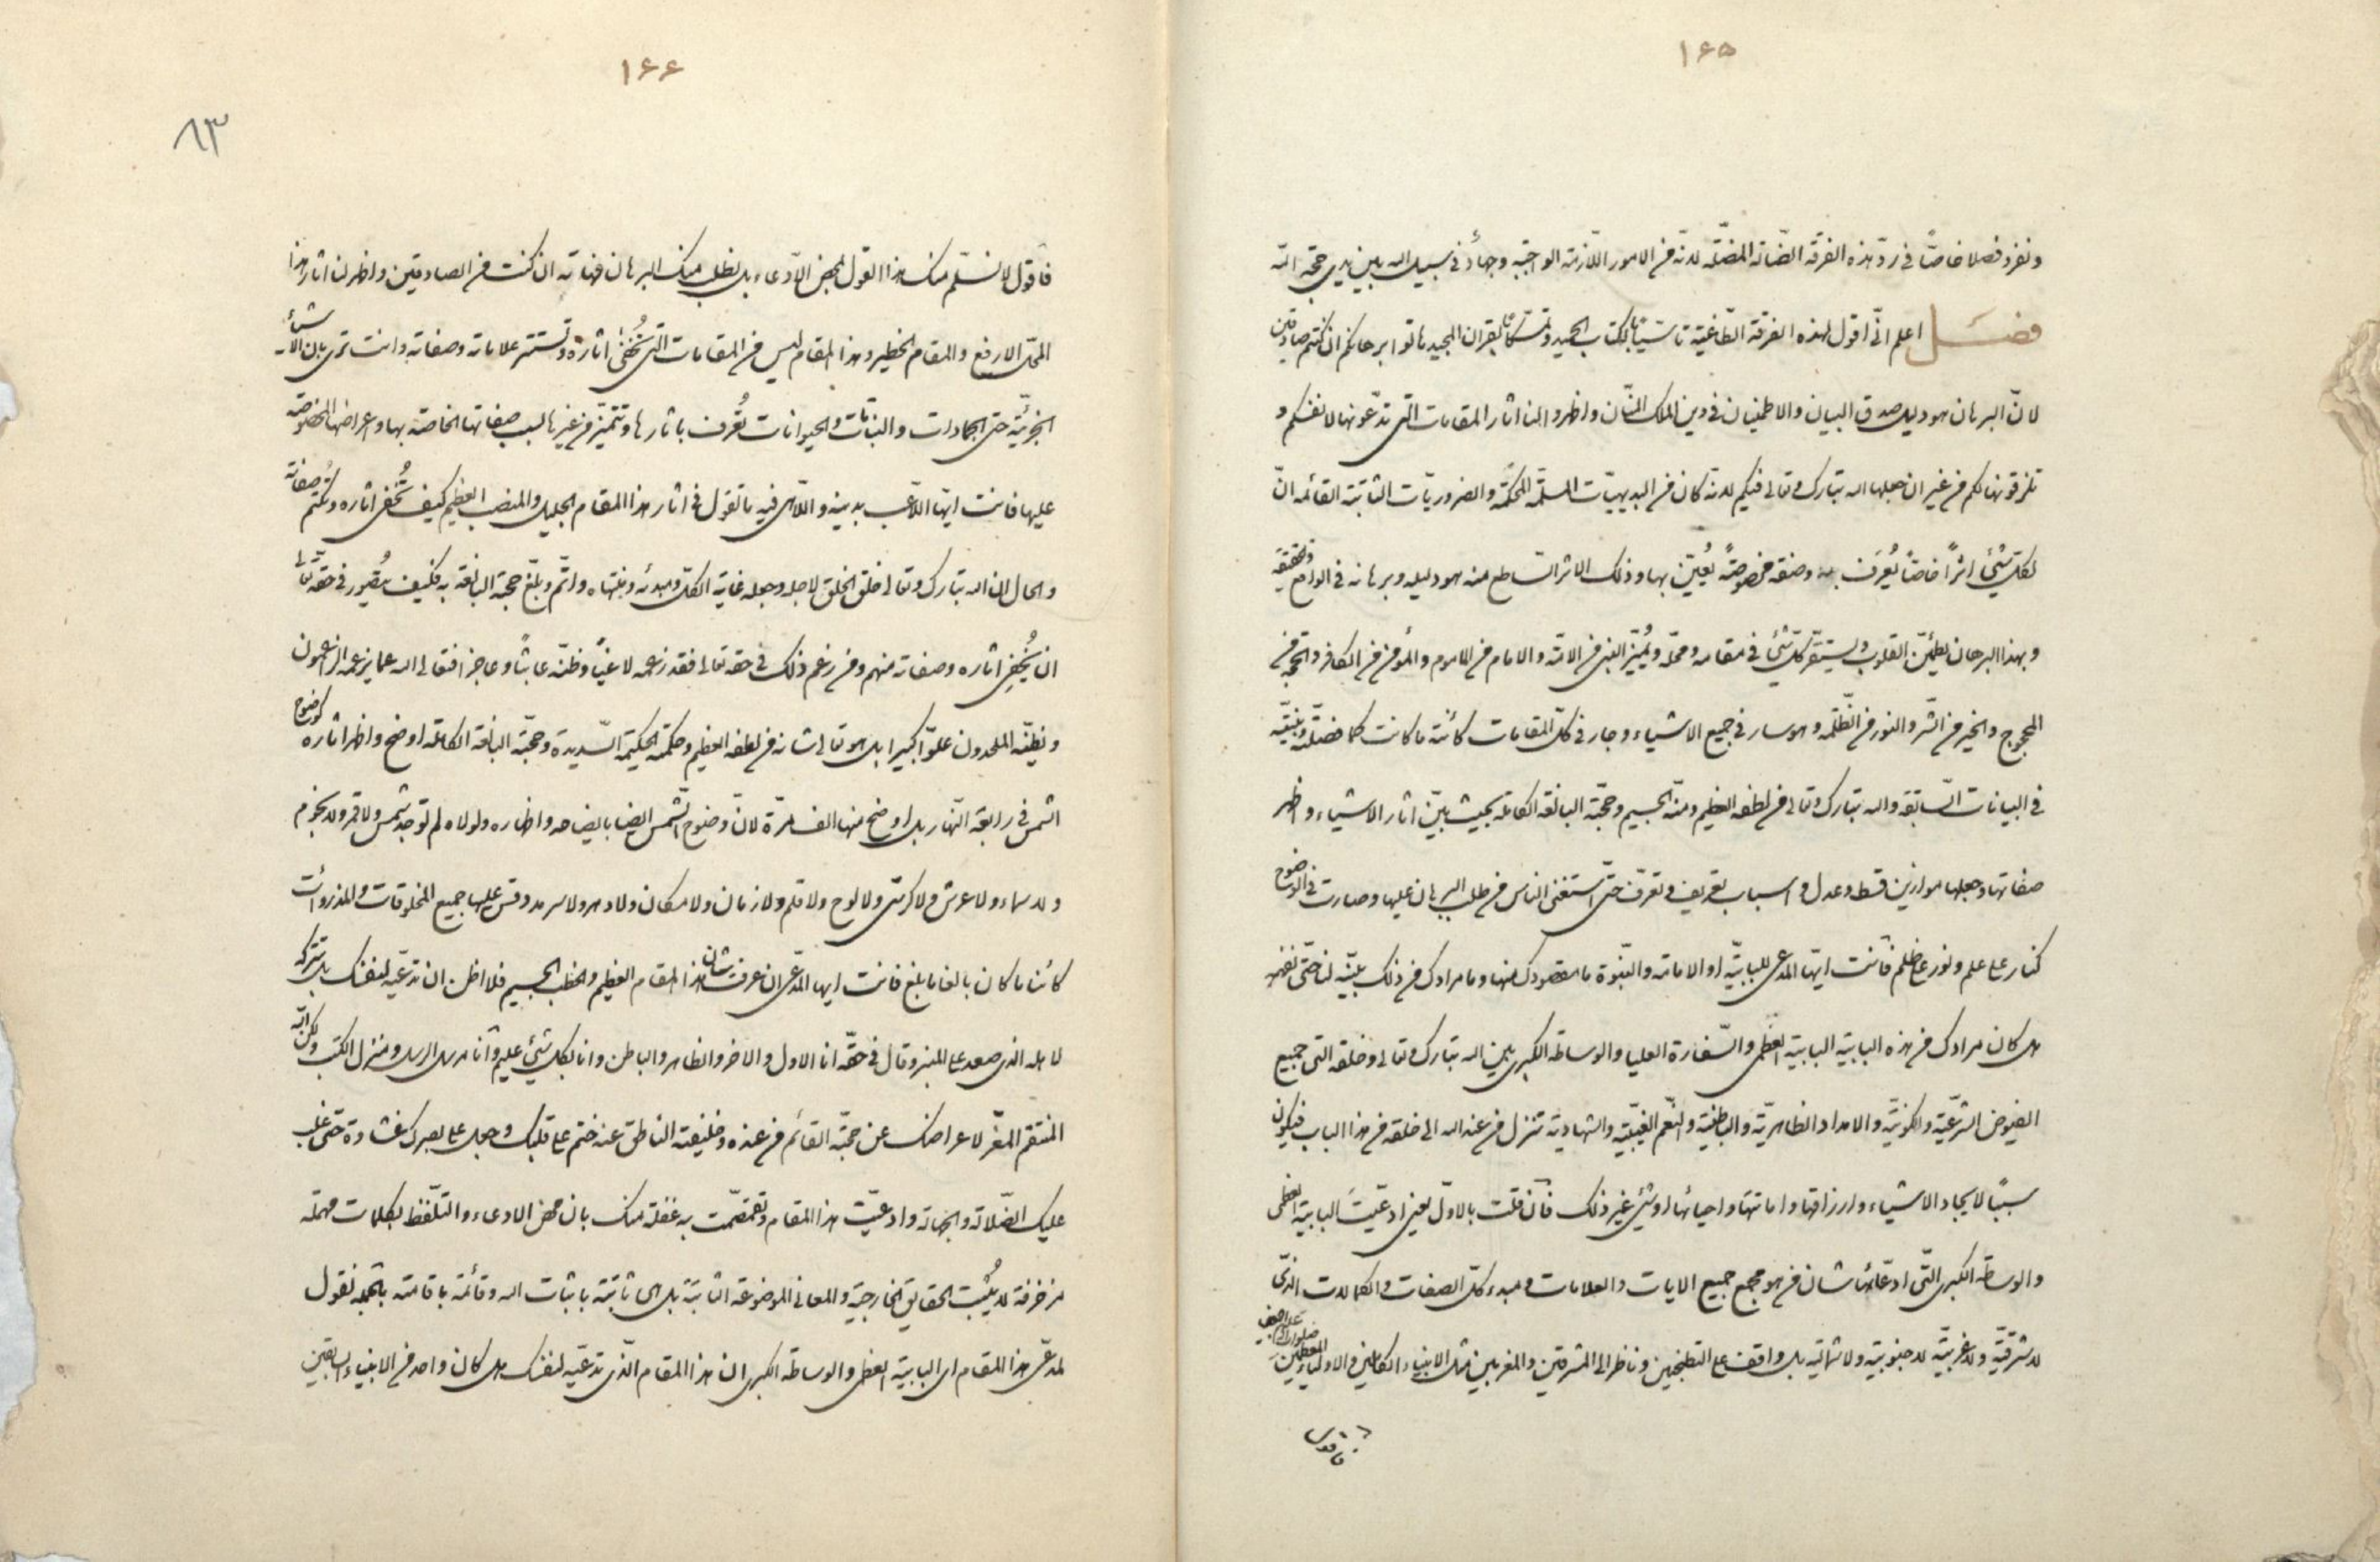 ١٦٥
ونفرد فصلا خاصّاً في ردّ هذه الفرقة الضّالة المضلّة لانه من الامور اللّازمة الواجبة وجهادٌ في سبيل الله بين يدي حجّة الله
فصل اعلم انّي اقول لهذه الفرقة الطاغية تاسّياً بالكتاب الحميد وتمسّكاً بالقران المجيد هاتوا برهانكم ان كنتم صادقين
لانّ البرهان هو دليل صدق البيان والاطمينان في دين الملك المنّان واظهروا لنا اثار المقامات الّتي تدّعونها لانفسكم و
عليكم من غير ان جعلها الله تبارك وتعالى فيكم لانه كان من البديهيّات المسلّمة المحكمة والضروريّات الثابتة القائمة انّ
لكل شئ اثراً خاصّاً يُعرَف به وصفة مخصوصةً يُعيّن بها وذلك الاثر السّاطع منه هو دليله وبرهانه في الواقع والحقيقة
وبهذا البرهان يطمئنّ القلوب ويستقرّ كلّ شئ في مقامه ومحلّه ويُميّز النبي من الامّة والامام من الماموم والمؤمن من الكافر والحجة من
المحجوج والخير من الشّر والنور من الظّلمة وهو سار في جميع الاشياء وجار في كلّ المقامات كائنة ما كانت كما فصّلته وبيّنته
في البيانات السّابقة والله تبارك وتعالى من لطفه العظيم ومنّه الجسيم وحجّته البالغة الكاملة بحيث بيّن اثار الاشياء واظهر
صفاتها وجعلها موازين قسط وعدل واسباب تعريف وتعرّف حتّى استغنى الناس من طلب البرهان عليها وصارت في الوضوح
كنار على علم ونور على ظلم فانت ايّها المدعي للبابيّة او الامامة والنبوّة ما مقصودك منها وما مرادك من ذلك بيّنه لنا حتّى نفهم
هل كان مرادك من هذه البابيّة البابيّة العظمى والسّفارة العليا والوساطة الكبرى بين الله تبارك وتعالى وخلقه الّتي جميع
الفيوض الشرعيّة والكونيّة والامداد الظاهريّة والباطنيّة والنّعم الغيبيّة والشهاديّة تنزل من عند الله الى خلقه من هذا الباب فيكون
سبباً لايجاد الاشياء وارزاقها واماتتها واحيائها او شئ غير ذلك فان قلت بالاوّل يعني ادعّيتَ البابيّة العظمى
والوساطة الكبرى الّتي ادعّائها شان من هو مجمع جميع الايات والعلامات ومبدء كلّ الصفات والكمالات الذّي
لا شرقيّة ولا غربيّة لا جنوبيّة ولا شماليّة بل واقف على الطتنجين وناظر الى المشرقين والمغربين مثل الانبياء الكاملين والاولياء المعظمين
صلوات الله عليهم اجمعين
فاقول
١٦٦
٨٣
فاقول لا نسلّم منك هذا القول لمحض الادّعاء بل نطلب منك البرهان فهاته ان كنت من الصادقين واظهر لنا اثار هذا
المحلّ الارفع والمقام الخطير وهذا المقام ليس من المقامات الّتي تُخفى اثاره وتستتر علاماته وصفاته وانت ترى بان الاشياء
الجزئيّة حتى الجمادات والنباتات والحيوانات تُعرف باثارها وتتميّز من غيرها بسبب صفاتها الخاصّة بها واعراضها المخصوصة
عليها فانت ايّها اللاعب بدينه واللاهي فيه ما تقول في اثار هذا المقام الجليل والمنصب العظيم كيف تُخفى اثاره وتُكتم صفاته
والحال ان الله تبارك وتعالى خلق الخلق لاجله وجعله غاية الكلّ ومبدئه ومنتهاه واتمّ وبلّغ حجته البالغة به فكيف يتصور في حقّه تعالى
ان يُخفي اثاره وصفاته منهم ومن زعم ذلك في حقه تعالى فقد زعمه لاغياً وظنّه عابثاً وعاجزا فتعالى الله عمّا يزعمه الزاعمون
ويظنّه الملحدون علوّاً كبيرا بل هو تعالى شانه من لطفه العظيم وحكمته الحكيمة السّديدة وحجّته البالغة الكاملة اوضح واظهر اثاره كوضوح
الشمس في رابعة النّهار بل اوضح منها الف مرّة لانّ وضوح الشّمس ايضا بايضاحه واظهاره ولولاه لم توجد شمس ولا قمر ولا نجوم
ولا سماء ولا عرش ولا كرسي ولا لوح ولا قلم ولا زمان ولا مكان ولا دهر ولا سرمد وقس عليها جميع المخلوقات والمذروئات
كائنا ما كان بالغا ما بلغ فانت ايها المدّعي ان عرفت شان هذا المقام العظيم والخطب الجسيم فلا اظن ان تدعّيه لنفسك بل تتركه
لاهله الذي صعد على المنبر وقال في حقّه انا الاول والاخر والظاهر والباطن وانا بكل شئ عليم وانا مرسل الرسل ومنزل الكتب ولكن الله
المنتقم المقرّ لاعراضك عن حجّته القائم من عنده وخليفته الناطق عنه ختم على قلبك وجعل على بصرك غشاوة حتّى غلب
عليك الضّلالة والجهالة وادعيّت هذا المقام وتقمّصت به غفلة منك بان محض الادعاء والتلّفظ بكلمات مهملة
مزخرفة لا يُثبت الحقايق الخارجيّة والمعاني الموضوعة الثابتة بل هي ثابتة باثبات الله وقائمة باقامته بالجملة نقول
لمدعّي هذا المقام اي البابيّة العظمى والوساطة الكبرى ان هذا المقام الذّي تدعّيه لنفسك هل كان واحد من الانبياء السابقين